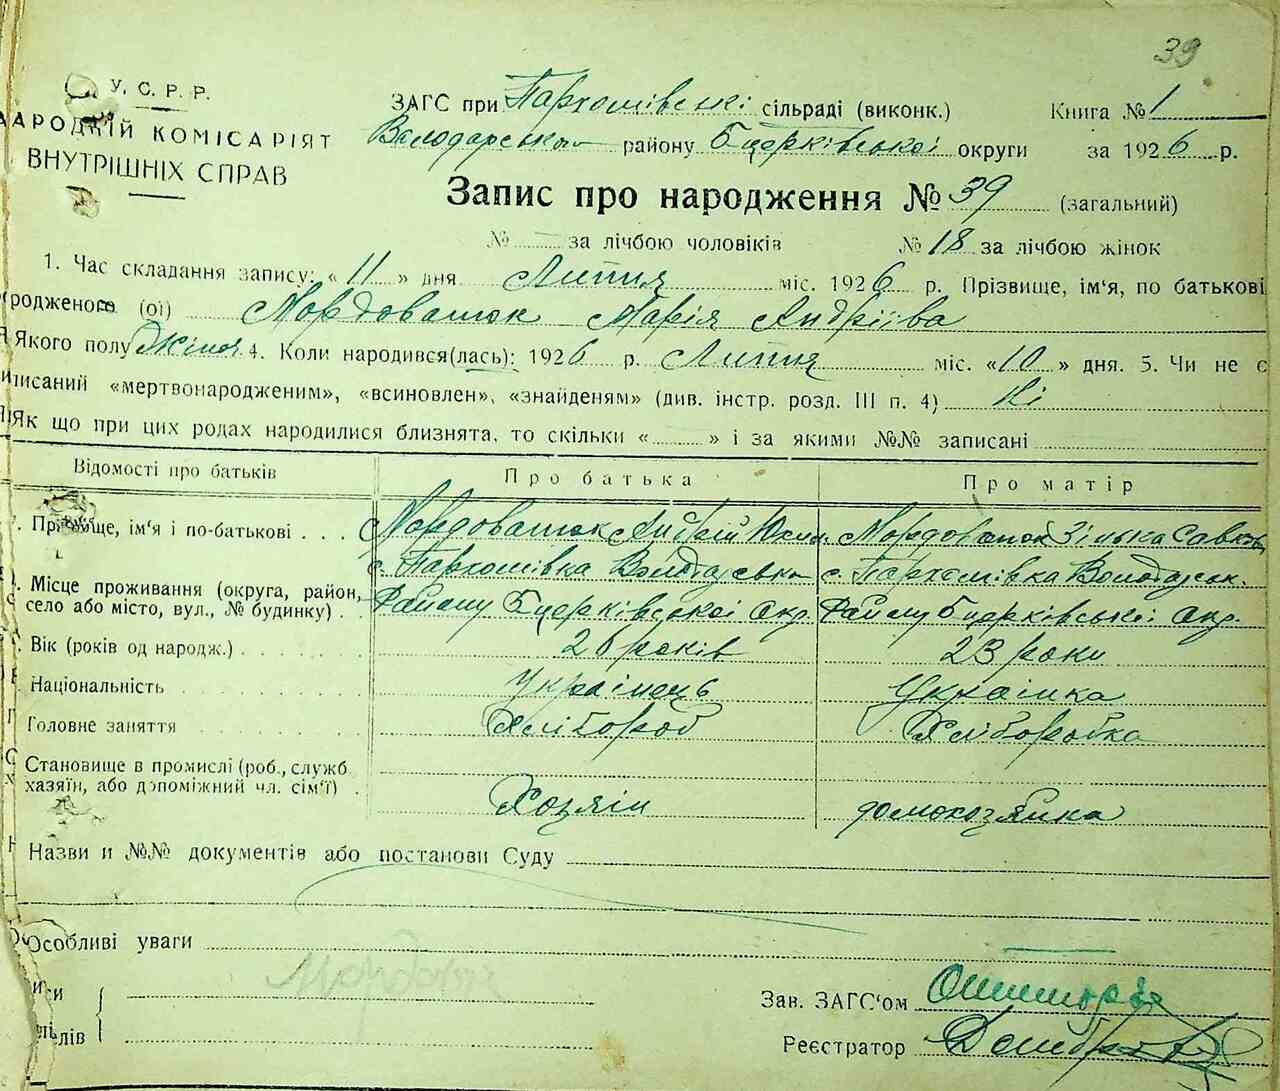 39
У. С. Р. Р.
НАРОДНІЙ КОМІСАРІЯТ
ВНУТРІШНІХ СПРАВ
ЗАГС при Пархомівські сільраді (виконк.) Книга № 1
Володарськ району Бцерківської округи за 1926 р.
Запис про народження № 39 (загальний)
№ за лічбою чоловіків № 18 за лічбою жінок
1. Час складання запису: «11» дня Липня міс. 1926 р. Прізвище, ім'я, по батькові
родженого (ої) Мордоватюк Марія Андріїва
Якого полу Жіноч 4. Коли народився(лась): 1926 р. Липня міс. «10» дня. 5. Чи не є
писаний «мертвонародженим», «всиновлен», «знайденям» (див. інстр. розд. III п. 4) Ні
Як що при цих родах народилися близнята, то скільки « » і за якими №№ записані
Відомості про батьків Про батька Про матір
Прізвище, ім'я і по-батькові Мордоватюк Андрій Юхим. Мордоватюк Зінька Савков
с. Пархомівка Володарська с. Пархомівка Володарськ.
Місце проживання (округа, район,
село або місто, вул., № будинку) Району Бцерківської окр. Району Бцерківської окр.
Вік (років од народж.) 26 років 23 роки
Національність Українець Українка
Головне заняття Хлібороб Хліборобка
Становище в промислі (роб., служб
хазяїн, або допоміжний чл. сім'ї) Хозяїн домохозяйка
Назви и №№ документів або постанови Суду
Особливі уваги
Зав. ЗАГС'ом
Реєстратор